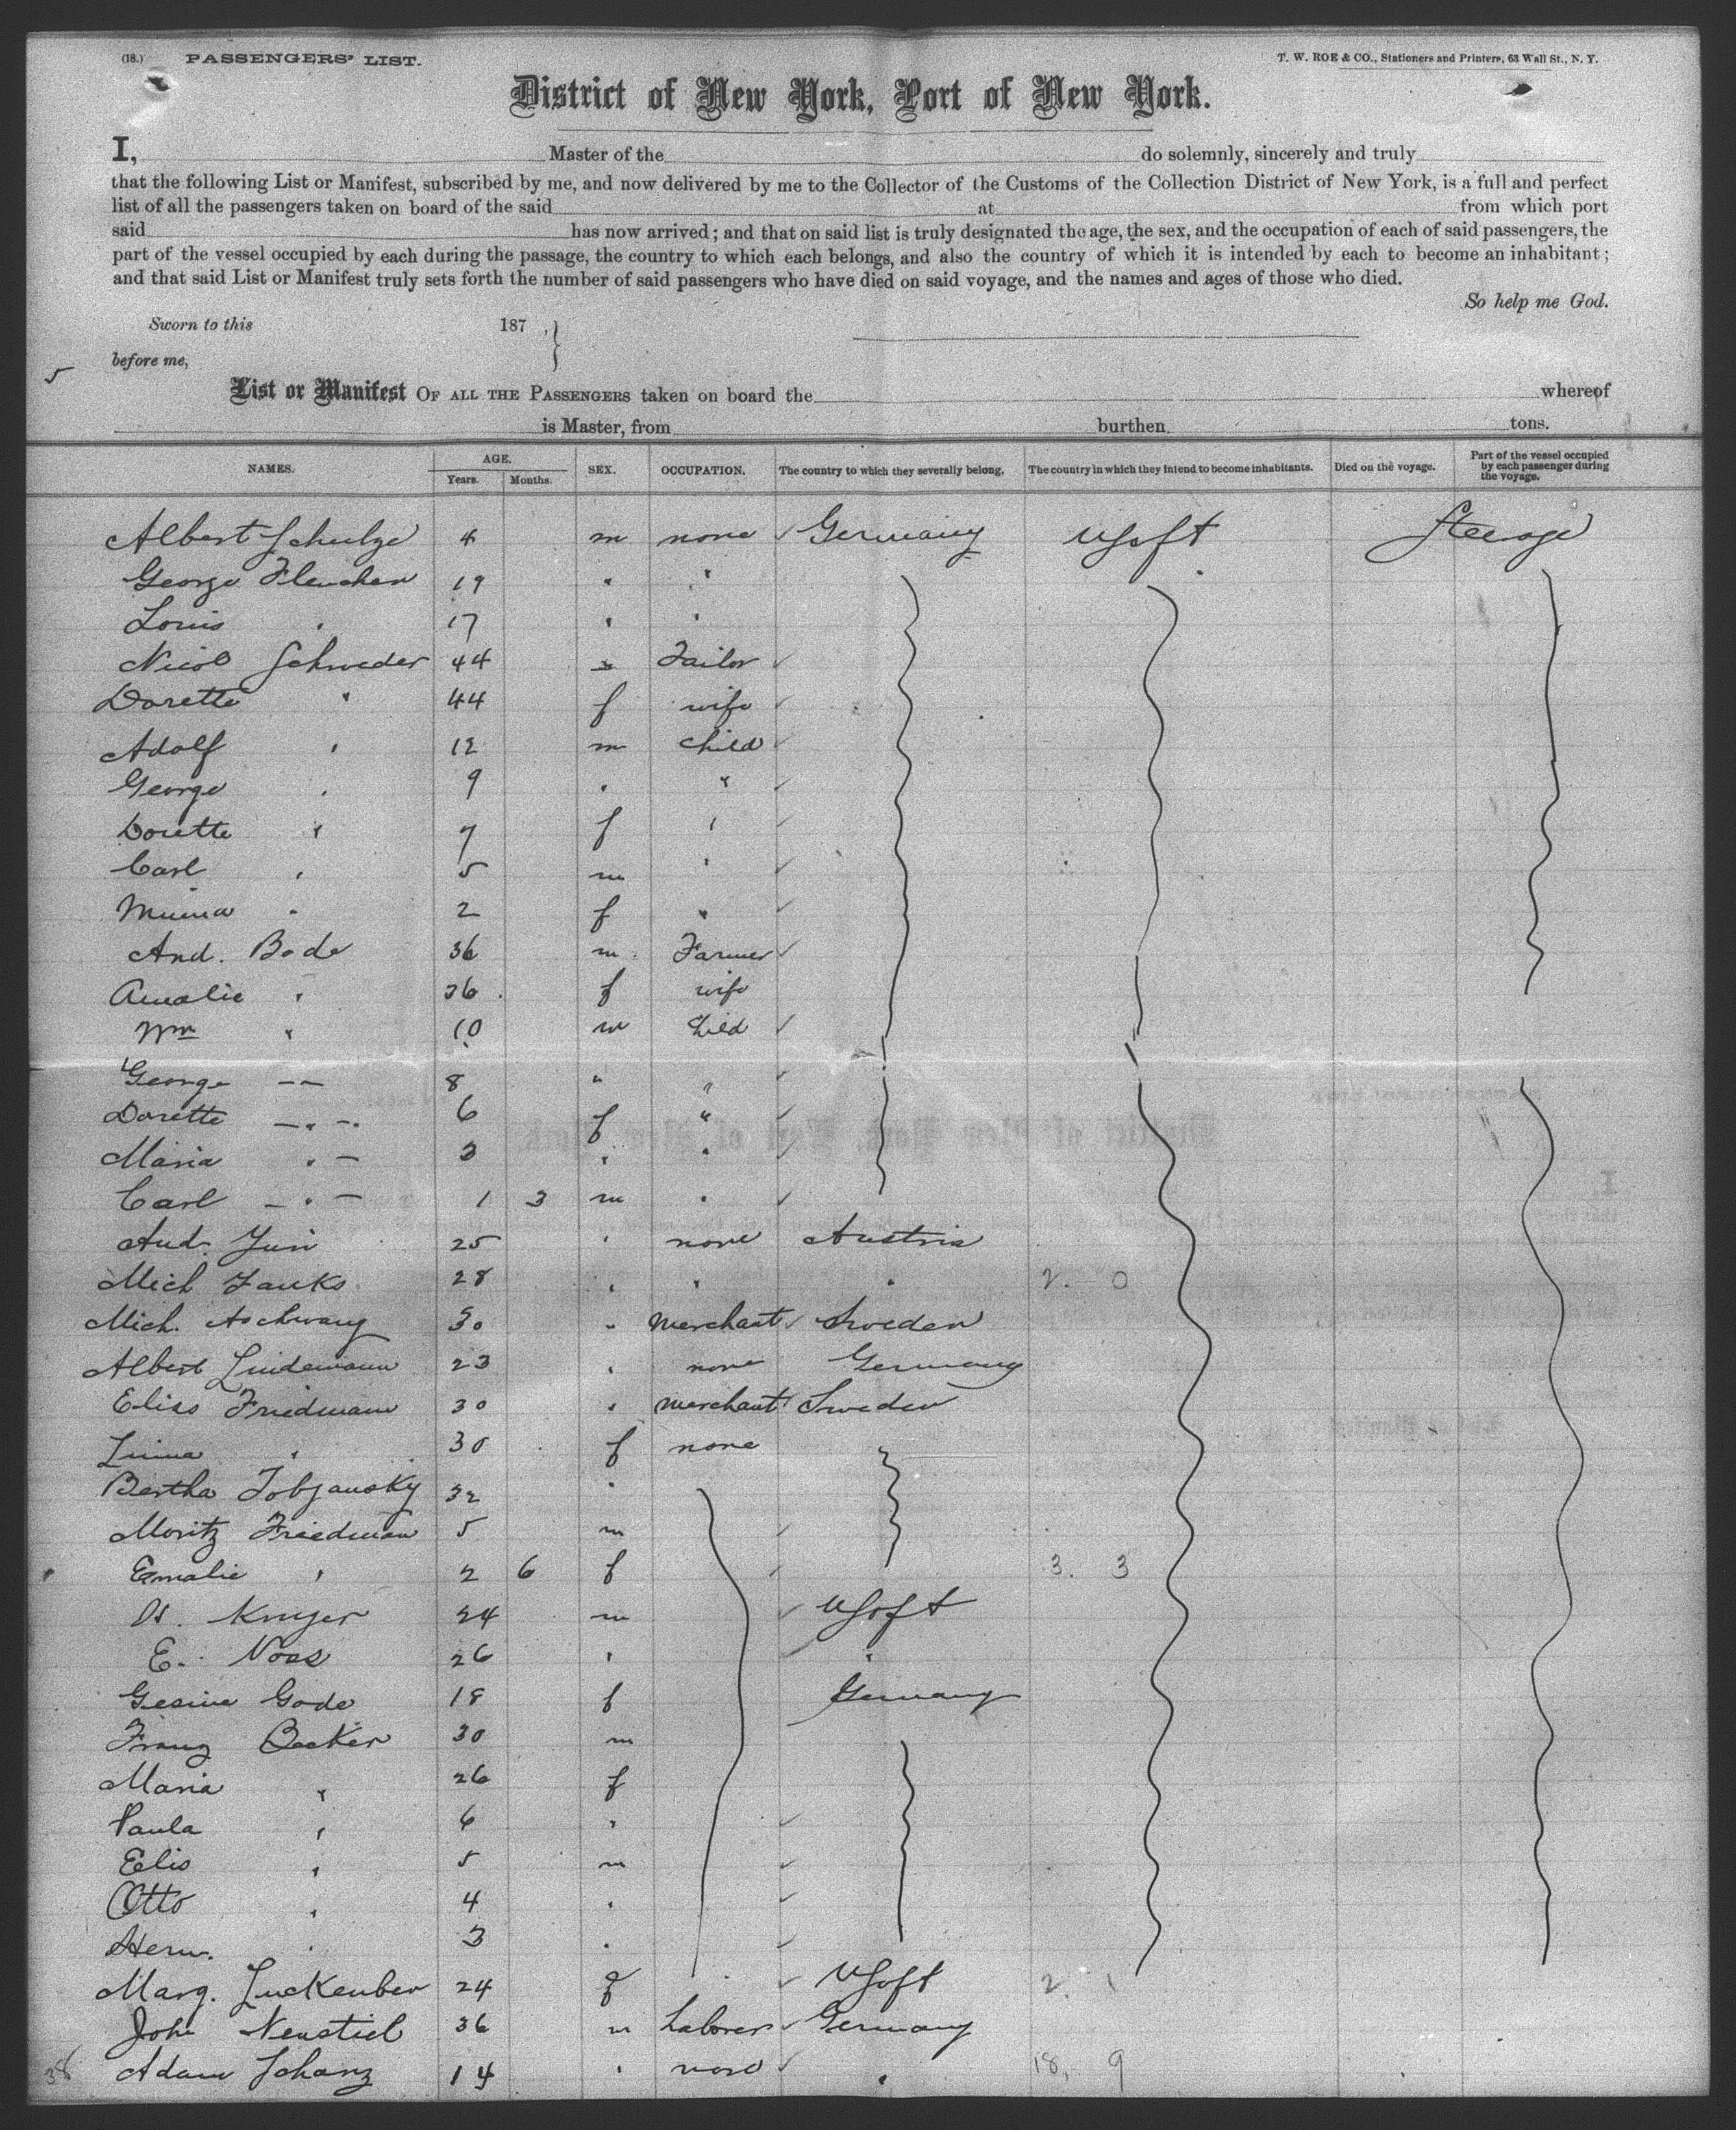 (18.) PASSENGERS' LIST. T. W. ROE & CO., Stationers and Printers, 63 Wall St., N. Y.
District of New York, Port of New York.
I, Master of the do solemnly, sincerely and truly
that the following List or Manifest, subscribed by me, and now delivered by me to the Collector of the Customs of the Collection District of New York, is a full and perfect
list of all the passengers taken on board of the said at from which port
said has now arrived; and that on said list is truly designated the age, the sex, and the occupation of each of said passengers, the
part of the vessel occupied by each during the passage, the country to which each belongs, and also the country of which it is intended by each to become an inhabitant;
and that said List or Manifest truly sets forth the number of said passengers who have died on said voyage, and the names and ages of those who died.
So help me God.
Sworn to this 187 ,}
before me,
5
List or Manifest OF ALL THE PASSENGERS taken on board the whereof
is Master, from burthen. tons.
NAMES. AGE. Years. Months. SEX. OCCUPATION. The country to which they severally belong. The country in which they intend to become inhabitants. Died on the voyage. Part of the vessel occupied by each passenger during the voyage.
Albert Schulze 4 m none Germany U S of A Steerage
George 19 " "
Louis " 17 " "
Nicol Schroeder 44 Tailor
Dorette " 44 f wife
Adolf " 12 m child
George " 9 " "
Dorette " 7 f "
Carl " 5 m "
Minna " 2 f "
And. Bode 36 m Farmer
Amalie " 36 f wife
Wm " 10 m child
George " 8 " "
Dorette " 6 f "
Maria " 3 " "
Carl " 1 3 m "
And. 25 " none Austria
Mich 28 " " " 2. 0
Mich. 30 " merchant Sweden
Albert Lindemann 23 " none Germany
Elias Friedmann 30 " merchant Sweden
" 30 f none
Bertha 32 "
Moritz Friedman 5 m
Emalie " 2 6 f 3. 3
Kruger 24 m U S of A
E. Voss 26 " "
Gesine Gode 18 f Germany
Franz Becker 30 m
Maria " 26 f
Paula " 6 "
Elis " 5 m
Otto " 4 "
Herm. " 3 "
Marg. 24 f U S of A 2. 1
John Neustiel 36 m Laborer Germany
38 Adam Schanz 14 " none " 18, 9